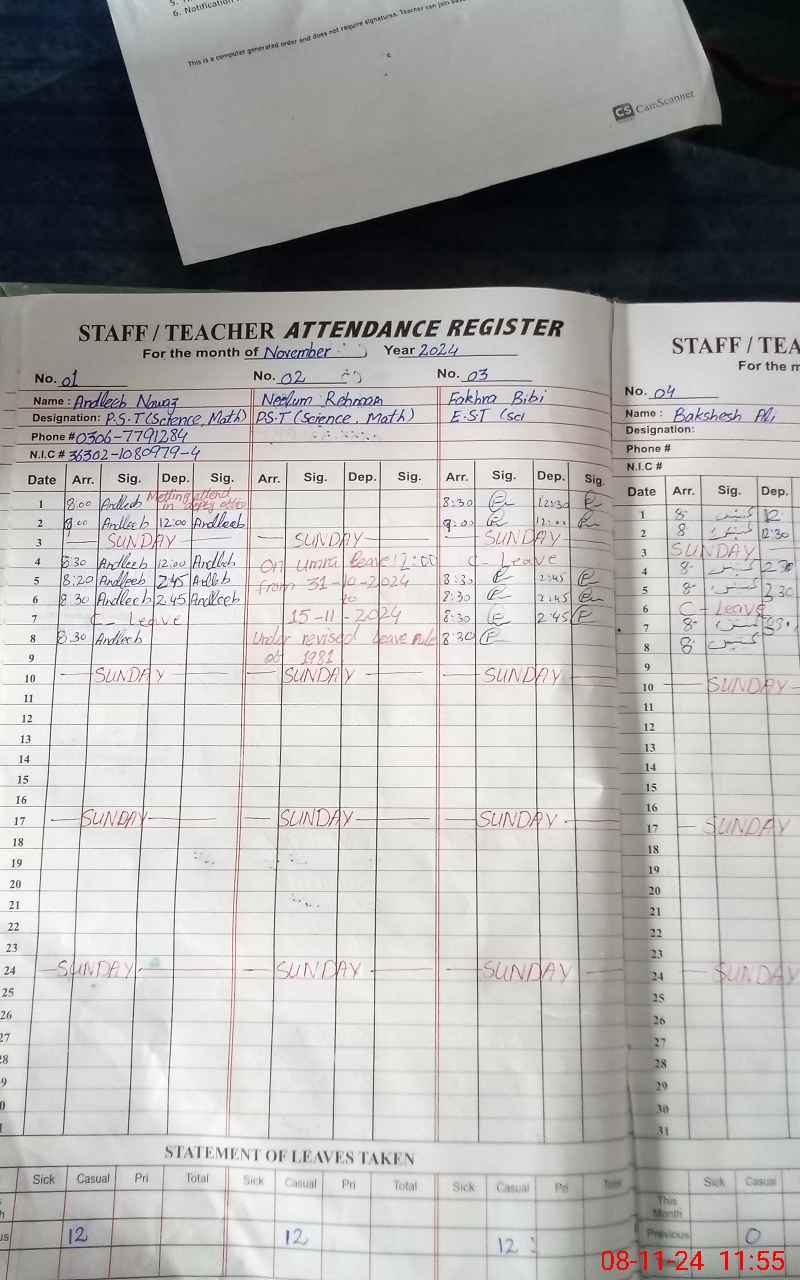 6. Notification
This is a computer generated order and does not require signatures. Teacher can join
CS CamScanner
STAFF / TEACHER ATTENDANCE REGISTER
For the month of November Year 2024
No. 01 No. 02 No. 03
Name : Andleeb Nawaz Neelum Rehman Fakhra Bibi
Designation: P.S.T (Science, Math) P.S.T (Science, Math) E.ST (Sci
Phone # 0306-7791284
N.I.C # 36302-1080979-4
Date Arr. Sig. Dep. Sig. Arr. Sig. Dep. Sig. Arr. Sig. Dep. Sig.
1 8:00 Andleeb Metting attend in 8:30 12:30
2 9:00 Andleeb 12:00 Andleeb 9:00 12:00
3 SUNDAY SUNDAY SUNDAY
4 8:30 Andleeb 12:00 Andleeb On umra leave 12:00 C- Leave
5 8:20 Andleeb 2:45 Andleeb from 31-10-2024 8:30 2:45
6 8:30 Andleeb 2:45 Andleeb to 8:30 2:45
7 C- Leave 15-11-2024 8:30 2:45
8 8:30 Andleeb Under revised leave rule 8:30
9 of 1981
10 SUNDAY SUNDAY SUNDAY
11
12
13
14
15
16
17 SUNDAY SUNDAY SUNDAY
18
19
20
21
22
23
24 SUNDAY SUNDAY SUNDAY
25
26
27
28
9
0
1
STATEMENT OF LEAVES TAKEN
Sick Casual Pri Total Sick Casual Pri Total Sick Casual Pri Total
12 12 12
STAFF / TEA
For the m
No. 04
Name : Bakshesh Ali
Designation:
Phone #
N.I.C #
Date Arr. Sig. Dep.
1 8- 12
2 8 12:30
3 SUNDAY
4 8- 2:30
5 8- 2:30
6 C- Leave
7 8-
8 8-
9
10 SUNDAY
11
12
13
14
15
16
17 SUNDAY
18
19
20
21
22
23
24 SUNDAY
25
26
27
28
29
30
31
Sick Casual
This Month
Previous 0
08-11-24 11:55